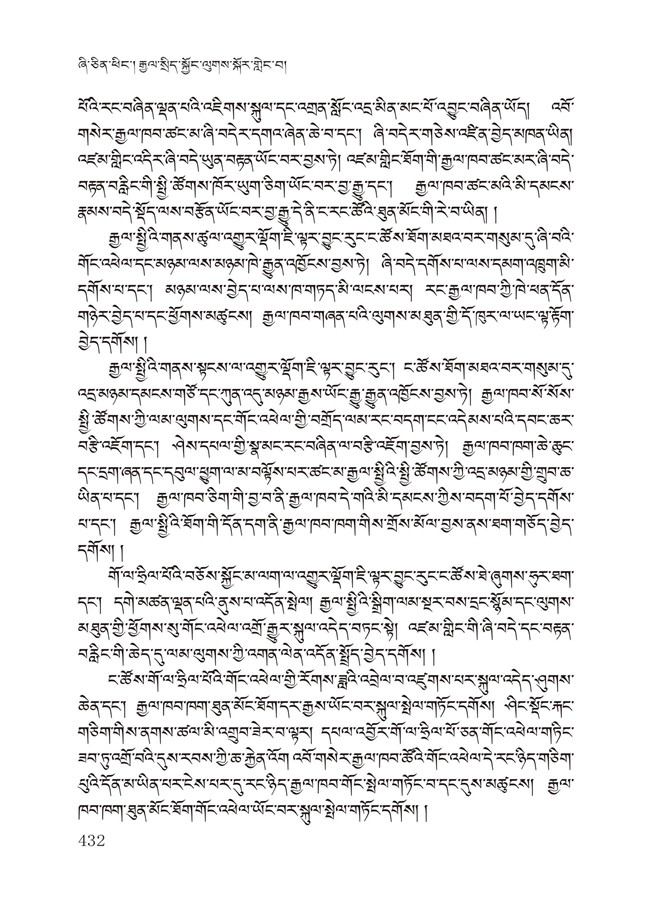 ཞི་ཅིན་ཕིང་། རྒྱལ་སྲིད་སྐྱོང་ལུགས་སྐོར་གླེང་བ།
པོའི་རང་བཞིན་ལྡན་པའི་འཇིགས་སྐུལ་དང་འགྲན་སློང་འདྲ་མིན་མང་པོ་འབྱུང་བཞིན་ཡོད། འབོ་
གསེར་རྒྱལ་ཁབ་ཚང་མ་ཞི་བདེར་དགའ་ཞེན་ཆེ་བ་དང་། ཞི་བདེར་གཅེས་འཛིན་བྱེད་མཁན་ཡིན།
འཛམ་གླིང་འདིར་ཞི་བདེ་ཡུན་བརྟན་ཡོང་བར་བྱས་ཏེ། འཛམ་གླིང་ཐོག་གི་རྒྱལ་ཁབ་ཚང་མར་ཞི་བདེ་
བརྟན་བརླིང་གི་སྤྱི་ཚོགས་ཁོར་ཡུག་ཅིག་ཡོང་བར་བྱ་རྒྱུ་དང་། རྒྱལ་ཁབ་ཚང་མའི་མི་དམངས་
རྣམས་བདེ་སྐྱིད་ལས་བརྩོན་ཡོང་བར་བྱ་རྒྱུ་དེ་ནི་ང་རང་ཚོའི་ཐུན་མོང་གི་རེ་བ་ཡིན། །
རྒྱལ་སྤྱིའི་གནས་ཚུལ་འགྱུར་ལྡོག་ཇི་ལྟར་བྱུང་རུང་ང་ཚོས་ཐོག་མཐའ་བར་གསུམ་དུ་ཞི་བའི་
གོང་འཕེལ་དང་མཉམ་ལས་མཉམ་ཁེ་རྒྱུན་འཁྱོངས་བྱས་ཏེ། ཞི་བདེ་དགོས་པ་ལས་དམག་འཁྲུག་མི་
དགོས་པ་དང་། མཉམ་ལས་བྱེད་པ་ལས་ཁ་གཏད་མི་ལངས་པར། རང་རྒྱལ་ཁབ་ཀྱི་ཁེ་ཕན་དོན་
གཉེར་བྱེད་པ་དང་ཕྱོགས་མཚུངས། རྒྱལ་ཁབ་གཞན་པའི་ལུགས་མཐུན་གྱི་དོ་ཁུར་ལ་ཡང་ལྟ་རྟོག་
བྱེད་དགོས། །
རྒྱལ་སྤྱིའི་གནས་སྟངས་ལ་འགྱུར་ལྡོག་ཇི་ལྟར་བྱུང་རུང་། ང་ཚོས་ཐོག་མཐའ་བར་གསུམ་དུ་
འདྲ་མཉམ་དམངས་གཙོ་དང་ཀུན་འདུ་མཉམ་རྒྱས་ཡོང་རྒྱུ་རྒྱུན་འཁྱོངས་བྱས་ཏེ། རྒྱལ་ཁབ་སོ་སོས་
སྤྱི་ཚོགས་ཀྱི་ལམ་ལུགས་དང་གོང་འཕེལ་གྱི་བགྲོད་ལམ་རང་བདག་ངང་འདེམས་པའི་དབང་ཆར་
བརྩི་འཇོག་དང་། ཤེས་དཔལ་གྱི་སྣ་མང་རང་བཞིན་ལ་བརྩི་འཇོག་བྱས་ཏེ། རྒྱལ་ཁབ་ཁག་ཆེ་ཆུང་
དང་དྲག་ཞན་དང་དབུལ་ཕྱུག་ལ་མ་བལྟོས་པར་ཚང་མ་རྒྱལ་སྤྱིའི་སྤྱི་ཚོགས་ཀྱི་འདྲ་མཉམ་གྱི་གྲུབ་ཆ་
ཡིན་པ་དང་། རྒྱལ་ཁབ་ཅིག་གི་བྱ་བ་ནི་རྒྱལ་ཁབ་དེ་གའི་མི་དམངས་ཀྱིས་བདག་པོ་བྱེད་དགོས་
པ་དང་། རྒྱལ་སྤྱིའི་ཐོག་གི་དོན་དག་ནི་རྒྱལ་ཁབ་ཁག་གིས་གྲོས་མོལ་བྱས་ནས་ཐག་གཅོད་བྱེད་
དགོས། །
གོ་ལ་ཧྲིལ་པོའི་བཅོས་སྐྱོང་མ་ལག་ལ་འགྱུར་ལྡོག་ཇི་ལྟར་བྱུང་རུང་ང་ཚོས་ཐེ་ཞུགས་ཧུར་ཐག་
དང་། དགེ་མཚན་ལྡན་པའི་ནུས་པ་འདོན་སྤེལ། རྒྱལ་སྤྱིའི་སྒྲིག་ལམ་སྔར་བས་དྲང་སྙོམ་དང་ལུགས་
མཐུན་གྱི་ཕྱོགས་སུ་གོང་འཕེལ་འགྲོ་རྒྱུར་སྐུལ་འདེད་བཏང་སྟེ། འཛམ་གླིང་གི་ཞི་བདེ་དང་བརྟན་
བརླིང་གི་ཆེད་དུ་ལམ་ལུགས་ཀྱི་འགན་ལེན་འདོན་སྤྲོད་བྱེད་དགོས། །
ང་ཚོས་གོ་ལ་ཧྲིལ་པོའི་གོང་འཕེལ་གྱི་རོགས་ཟླའི་འབྲེལ་བ་འཛུགས་པར་སྐུལ་འདེད་ཤུགས་
ཆེན་དང་། རྒྱལ་ཁབ་ཁག་ཐུན་མོང་ཐོག་དར་རྒྱས་ཡོང་བར་སྐུལ་སྤེལ་གཏོང་དགོས། ཤིང་སྡོང་རྐང་
གཅིག་གིས་ནགས་ཚལ་མི་འགྲུབ་ཟེར་བ་ལྟར། དཔལ་འབྱོར་གོ་ལ་ཧྲིལ་པོ་ཅན་གོང་འཕེལ་གཏིང་
ཟབ་ཏུ་འགྲོ་བའི་དུས་རབས་ཀྱི་ཆ་རྐྱེན་འོག འབོ་གསེར་རྒྱལ་ཁབ་ཚོའི་གོང་འཕེལ་དེ་རང་ཉིད་གཅིག་
པུའི་དོན་མ་ཡིན་པར་ངེས་པར་དུ་རང་ཉིད་རྒྱལ་ཁབ་གོང་སྤེལ་གཏོང་བ་དང་དུས་མཚུངས། རྒྱལ་
ཁབ་ཁག་ཐུན་མོང་ཐོག་གོང་འཕེལ་ཡོང་བར་སྐུལ་སྤེལ་གཏོང་དགོས། །
432